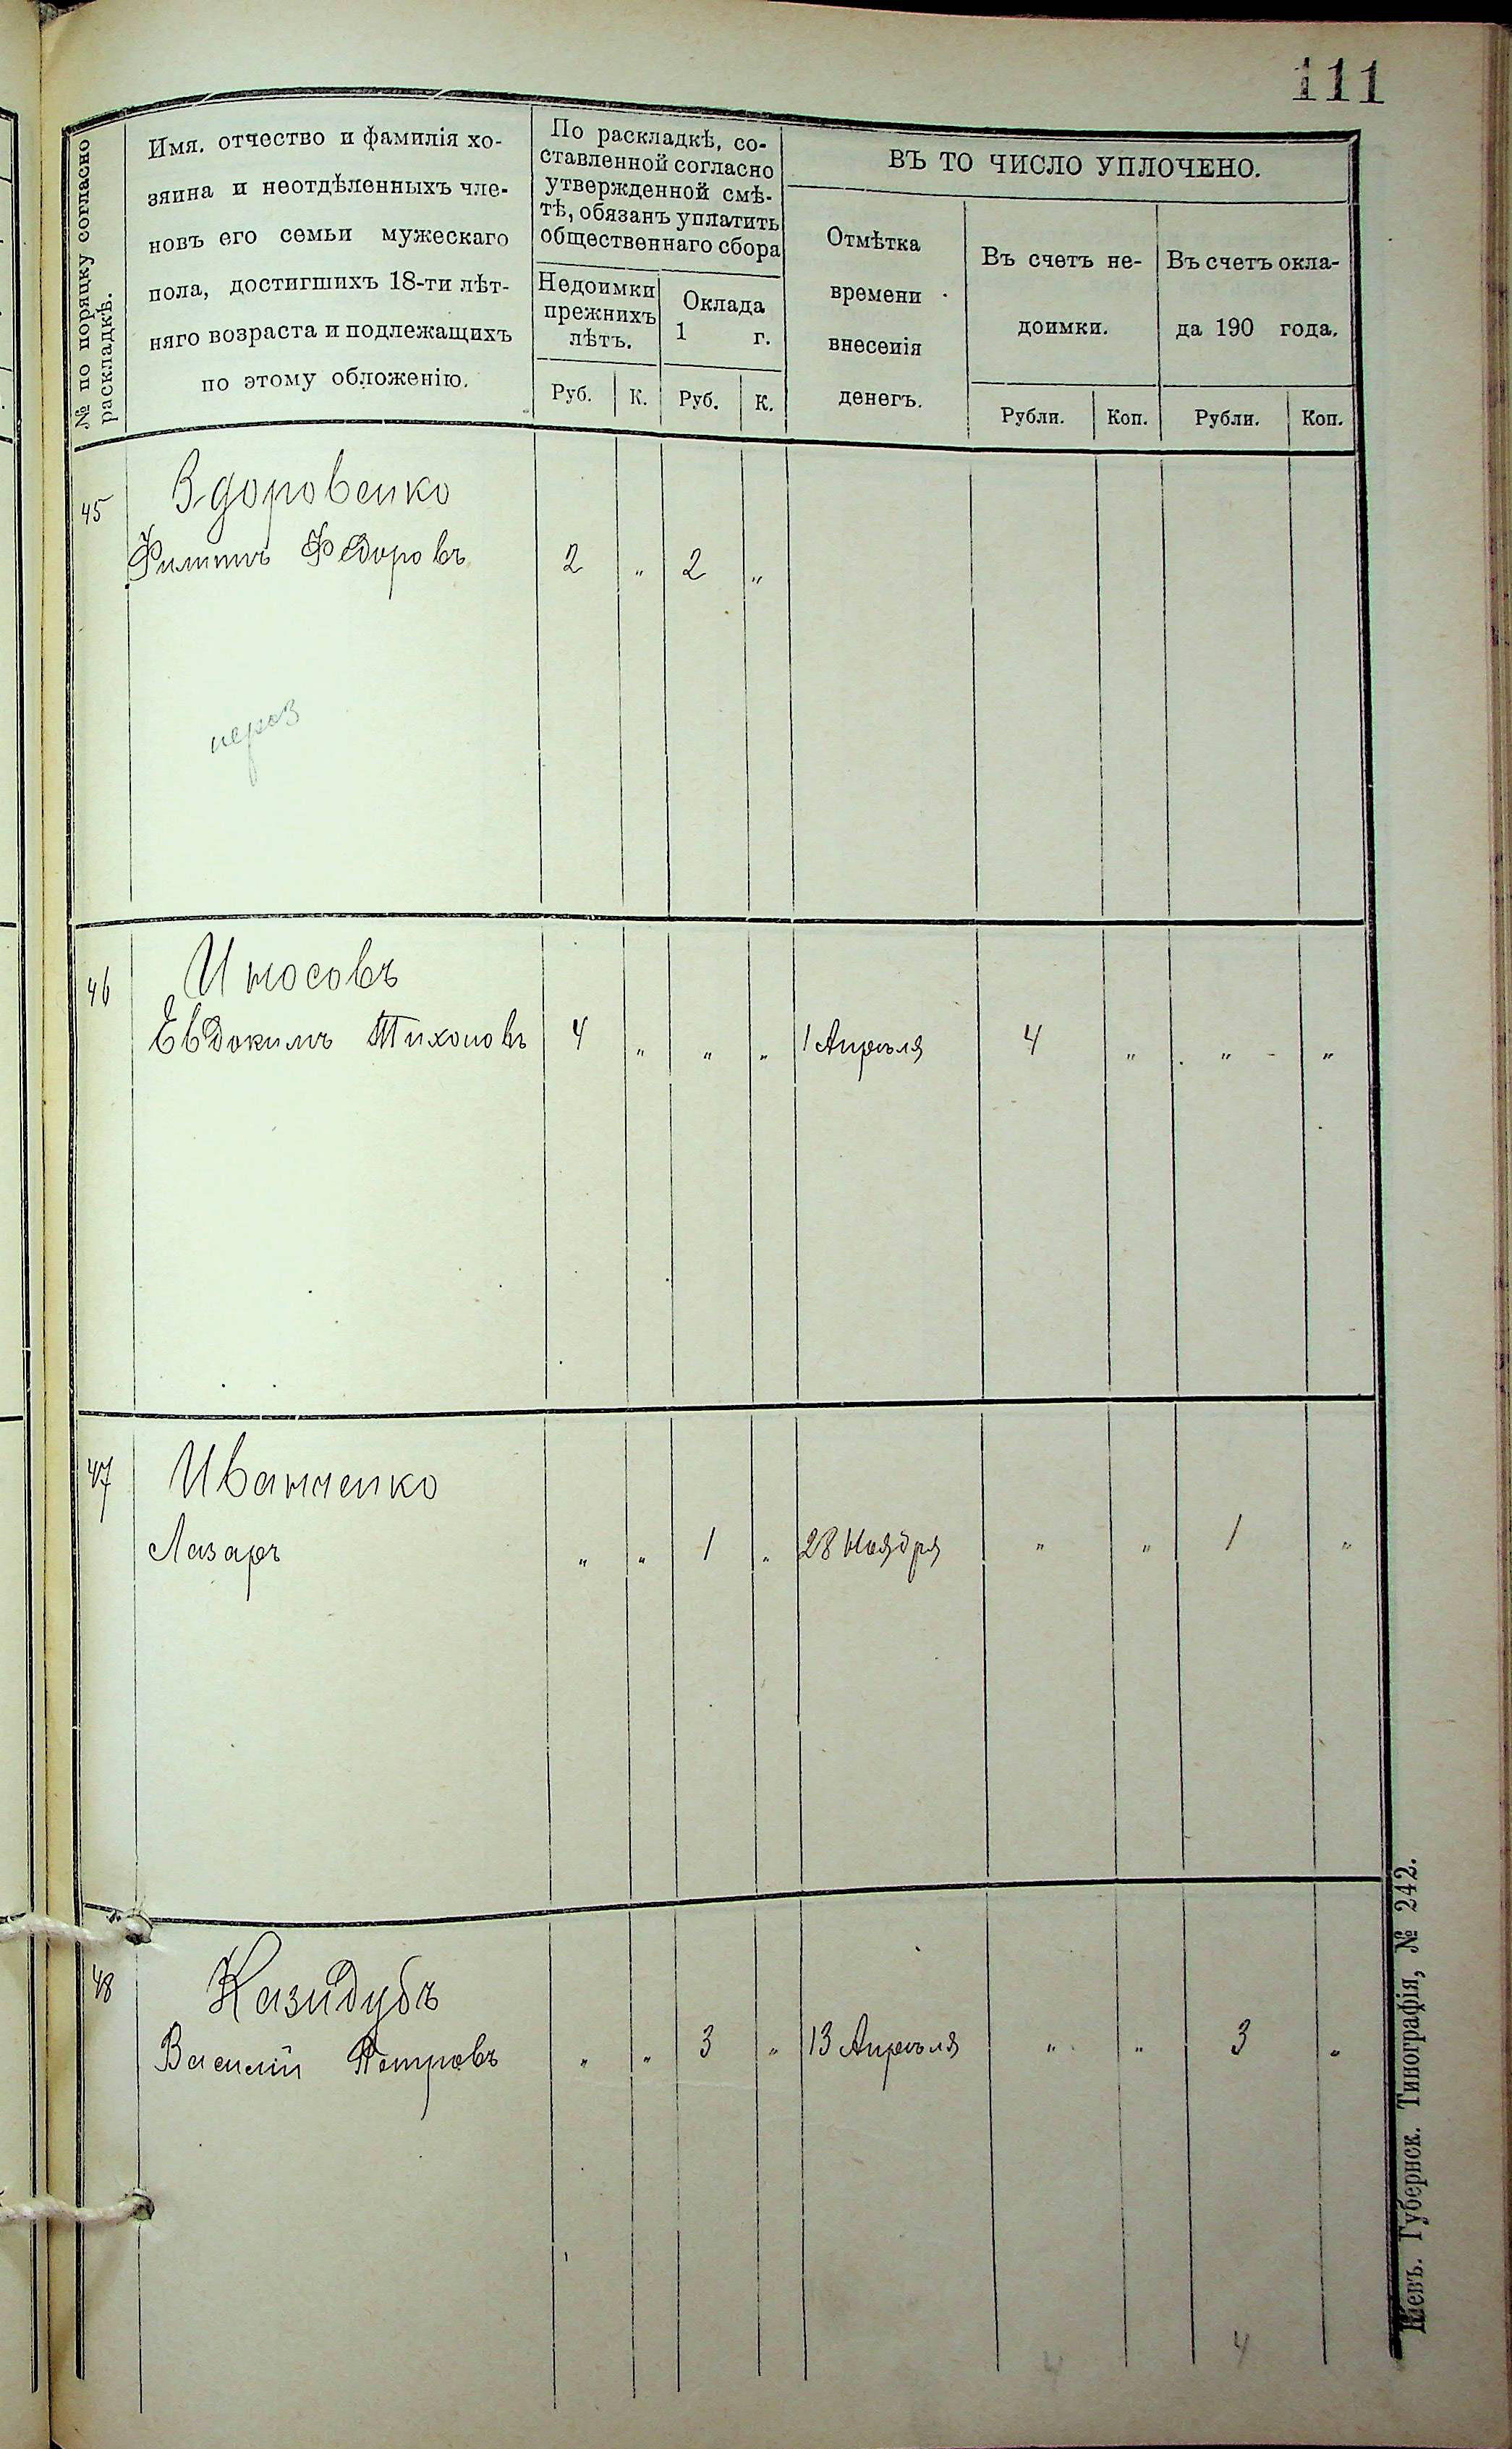 111
№ по порядку согласно
раскладкѣ.
Имя, отчество и фамилія хо-
зяина и неотдѣленныхъ чле-
новъ его семьи мужескаго
пола, достигшихъ 18-ти лѣт-
няго возраста и подлежащихъ
по этому обложенію.
По раскладкѣ, со-
ставленной согласно
утвержденной смѣ-
тѣ, обязанъ уплатить
общественнаго сбора
Недоимки
прежнихъ
лѣтъ.
Оклада
1 г.
Руб. К. Руб. К.
ВЪ ТО ЧИСЛО УПЛОЧЕНО.
Отмѣтка
времени
внесенія
денегъ.
Въ счетъ не-
доимки.
Въ счетъ окла-
да 190 года.
Рубли. Коп. Рубли. Коп.
45 Здоровенко
Филиппъ Федоровъ 2 „ 2 „
46 Иносовъ
Евдокимъ Тихоновъ 4 „ „ „ 1 Апрѣля 4 „ „ „
47 Иванченко
Лазарь „ „ 1 „ 28 Ноября „ „ 1 „
48 Казидубъ
Василій Петровъ „ „ 3 „ 13 Апрѣля „ „ 3 „
4 4
Кіевъ. Губернск. Типографія, № 242.